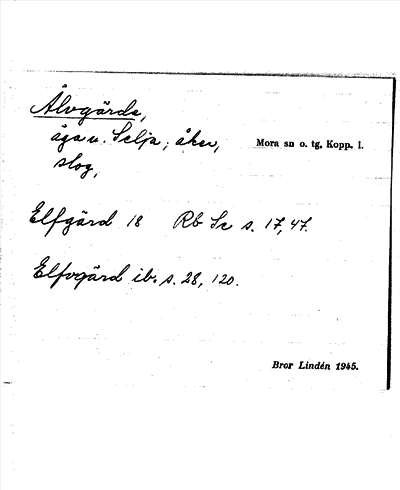 Älvgärde,
äga u. Selja; åker, Mora sn o. tg, Kopp. l.
slog,
Elfgärd 18 Rb Se s. 17, 47.
Elfvgärd ib. s. 28, 120.
Bror Lindén 1945.